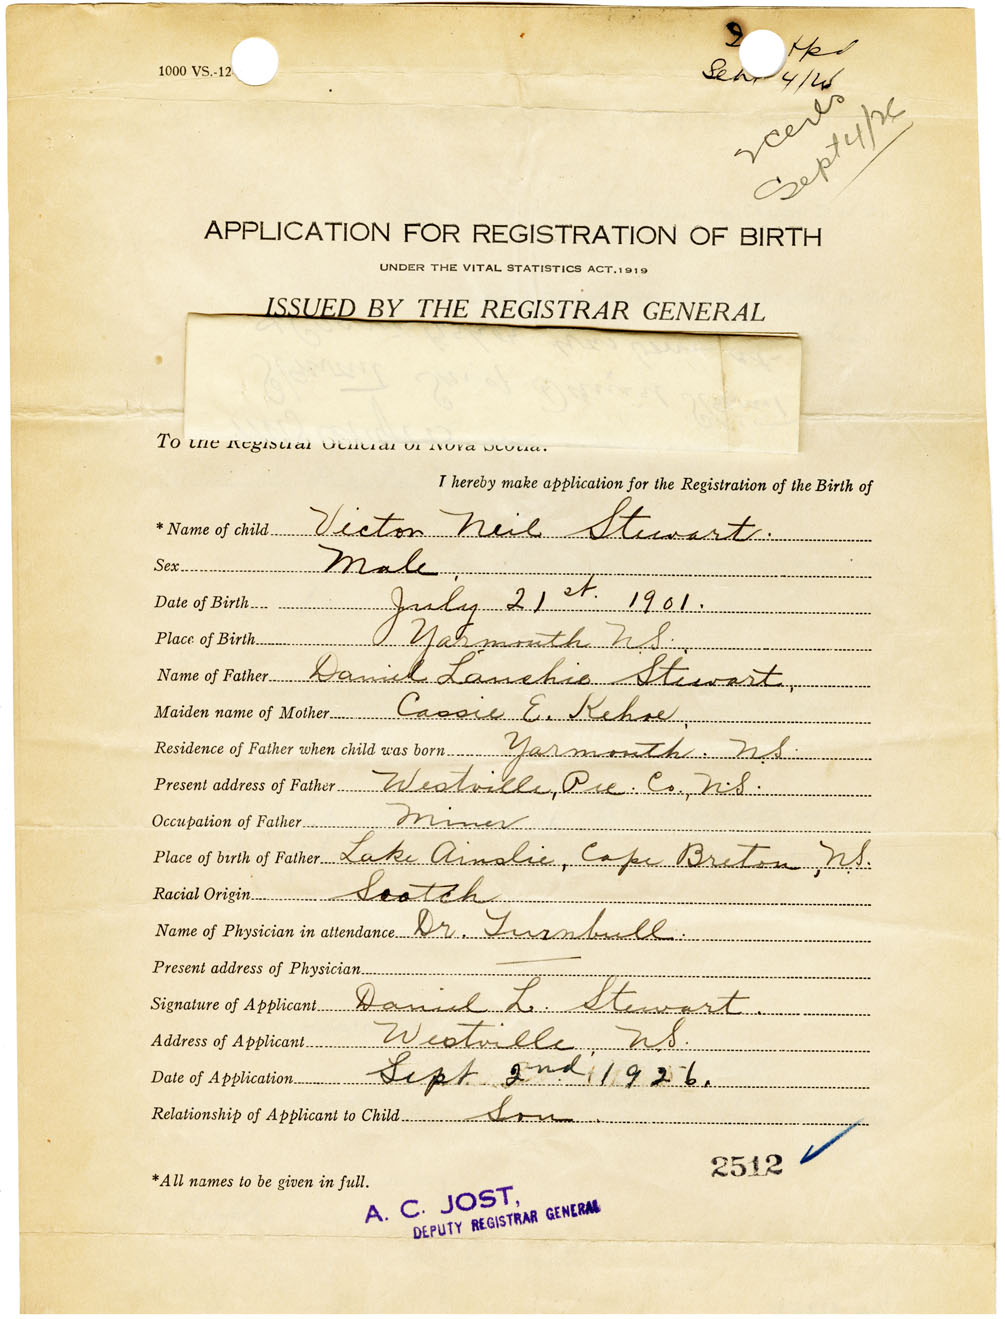 1000 VS.-12
Sept 4/26
2 certs
Sept 4/26
APPLICATION FOR REGISTRATION OF BIRTH
UNDER THE VITAL STATISTICS ACT, 1919
ISSUED BY THE REGISTRAR GENERAL
To the Registrar General of Nova Scotia.
I hereby make application for the Registration of the Birth of
* Name of child Victor Neil Stewart.
Sex Male.
Date of Birth July 21st. 1901.
Place of Birth Yarmouth N.S.
Name of Father Daniel Lauchie Stewart,
Maiden name of Mother Cassie E. Kehoe,
Residence of Father when child was born Yarmouth. N.S.
Present address of Father Westville, Pic. Co., N.S.
Occupation of Father Miner
Place of birth of Father Lake Ainslie, Cape Breton, N.S.
Racial Origin Scotch
Name of Physician in attendance Dr. Turnbull.
Present address of Physician —
Signature of Applicant Daniel L. Stewart.
Address of Applicant Westville, N.S.
Date of Application Sept. 2nd 1926.
Relationship of Applicant to Child Son.
2512
*All names to be given in full.
A. C. JOST,
DEPUTY REGISTRAR GENERAL